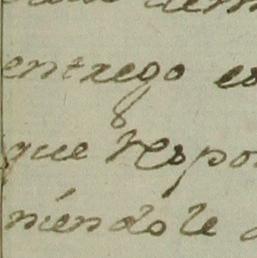 entrego es
que respon
niendole